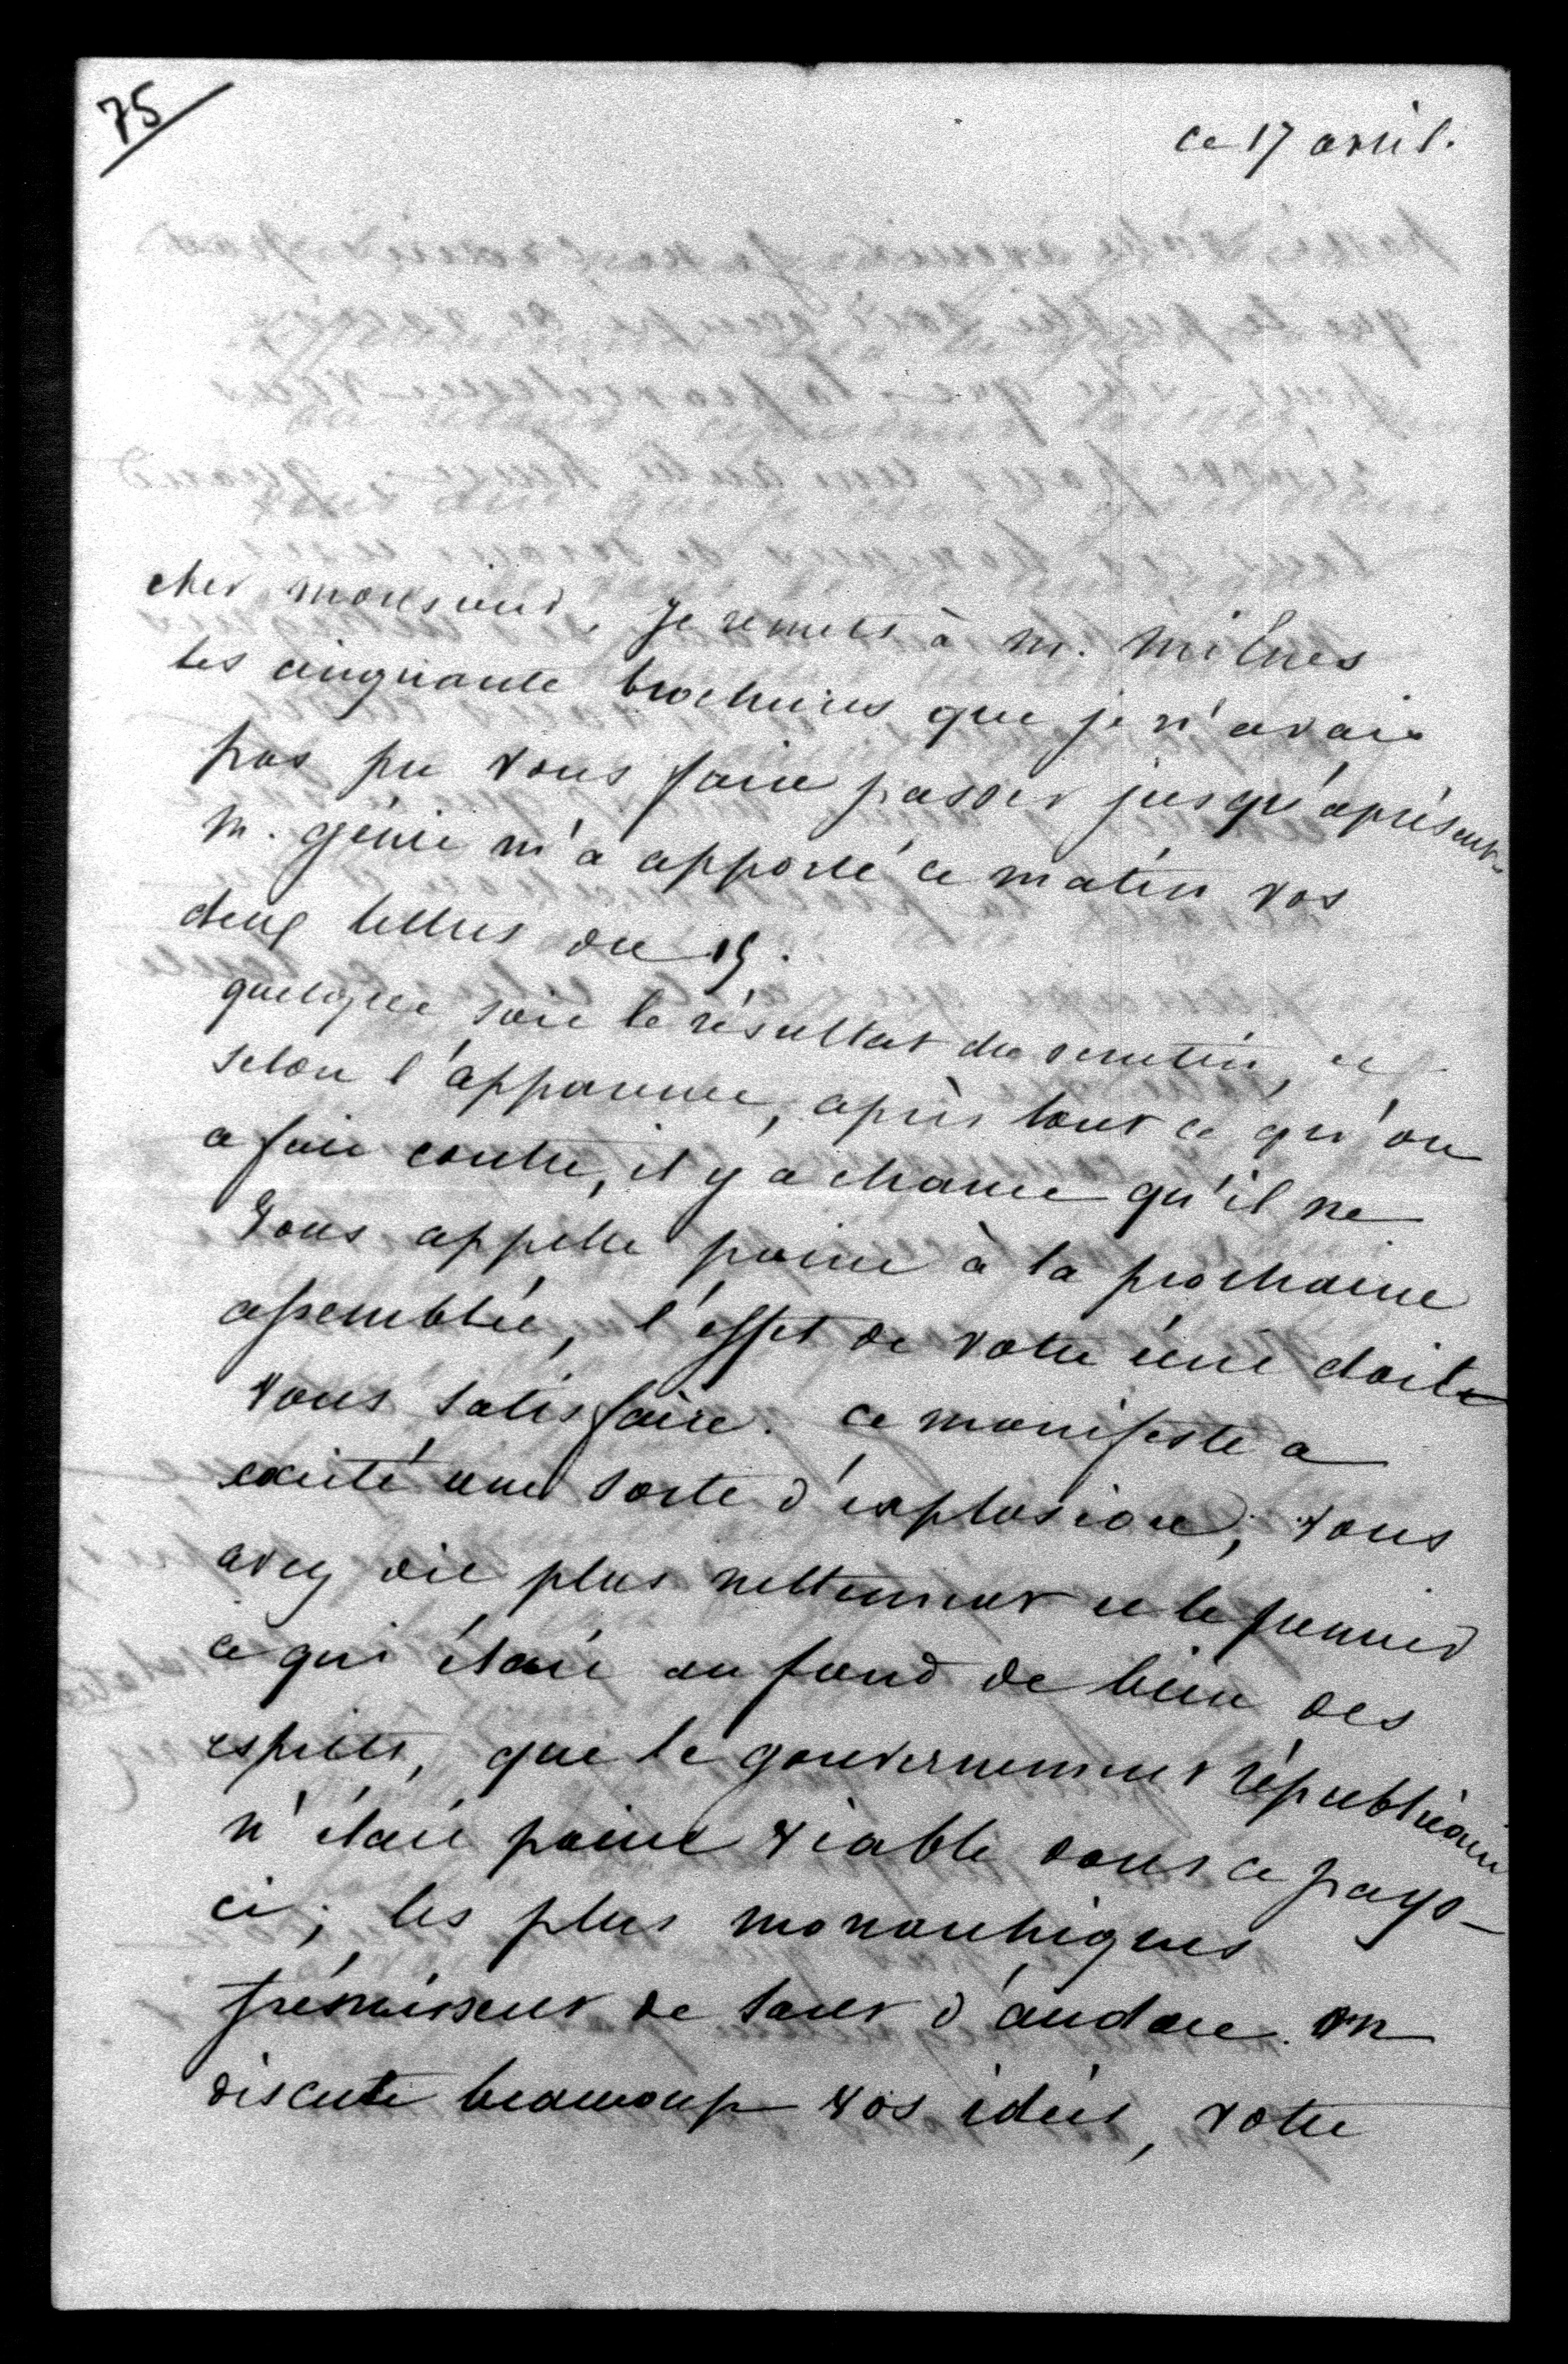 75
ce 17 avril.
cher monsieur, je remets à m. Milnes
les cinquante brochures que je n'avais
pas pu vous faire passer jusqu'aprésent.
M. génie m'a apporté ce matin vos
deux lettres du 15.
quelque soit le résultat du scrutin, et
selon l'apparence, après tout ce qu'on
a fait contre, il y a chance qu'il ne
vous appelle point à la prochaine
assemblée, l'effet de votre écrit doit
vous satisfaire. ce manifeste a
excité une sorte d'explosion; vous
avez dit plus nettement et le premier
ce qui était au fond de bien des
esprits, que le gouvernement républicain
n'était point viable dans ce pays-
ci; les plus monarchiques
frémissent de tant d'audace. on
discute beaucoup vos idées, votre